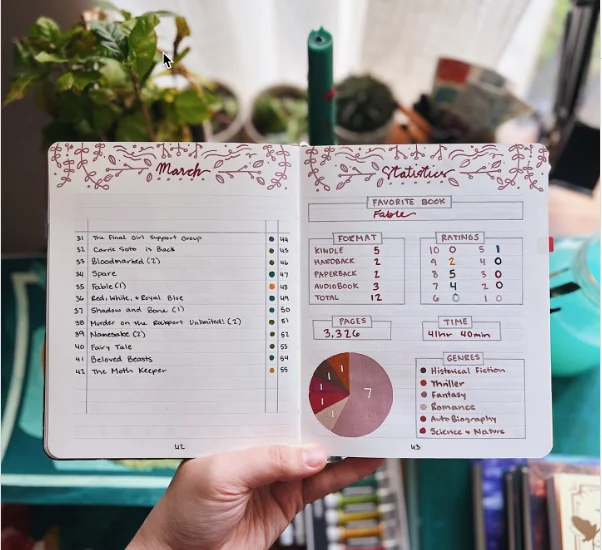 March
31 The Final Girl Support Group 44
32 Carrie Soto is Back 45
33 Bloodmarked (2) 46
34 Spare 47
35 Fable (1) 48
36 Red, White, + Royal Blue 49
37 Shadow and Bone (1) 50
38 Murder on the Rockport Unlimited! (2) 51
39 Namesake (2) 52
40 Fairy Tale 53
41 Beloved Beasts 54
42 The Moth Keeper 55
42
Statistics
FAVORITE BOOK
Fable
FORMAT
KINDLE 5
HARDBACK 2
PAPERBACK 2
AUDIOBOOK 3
TOTAL 12
RATINGS
10 0 5 1
9 2 4 0
8 5 3 0
7 4 2 0
6 0 1 0
PAGES
3,326
TIME
41hr 40min
1
1
1
1
7
GENRES
Historical Fiction
Thriller
Fantasy
Romance
AutoBiography
Science + Nature
43